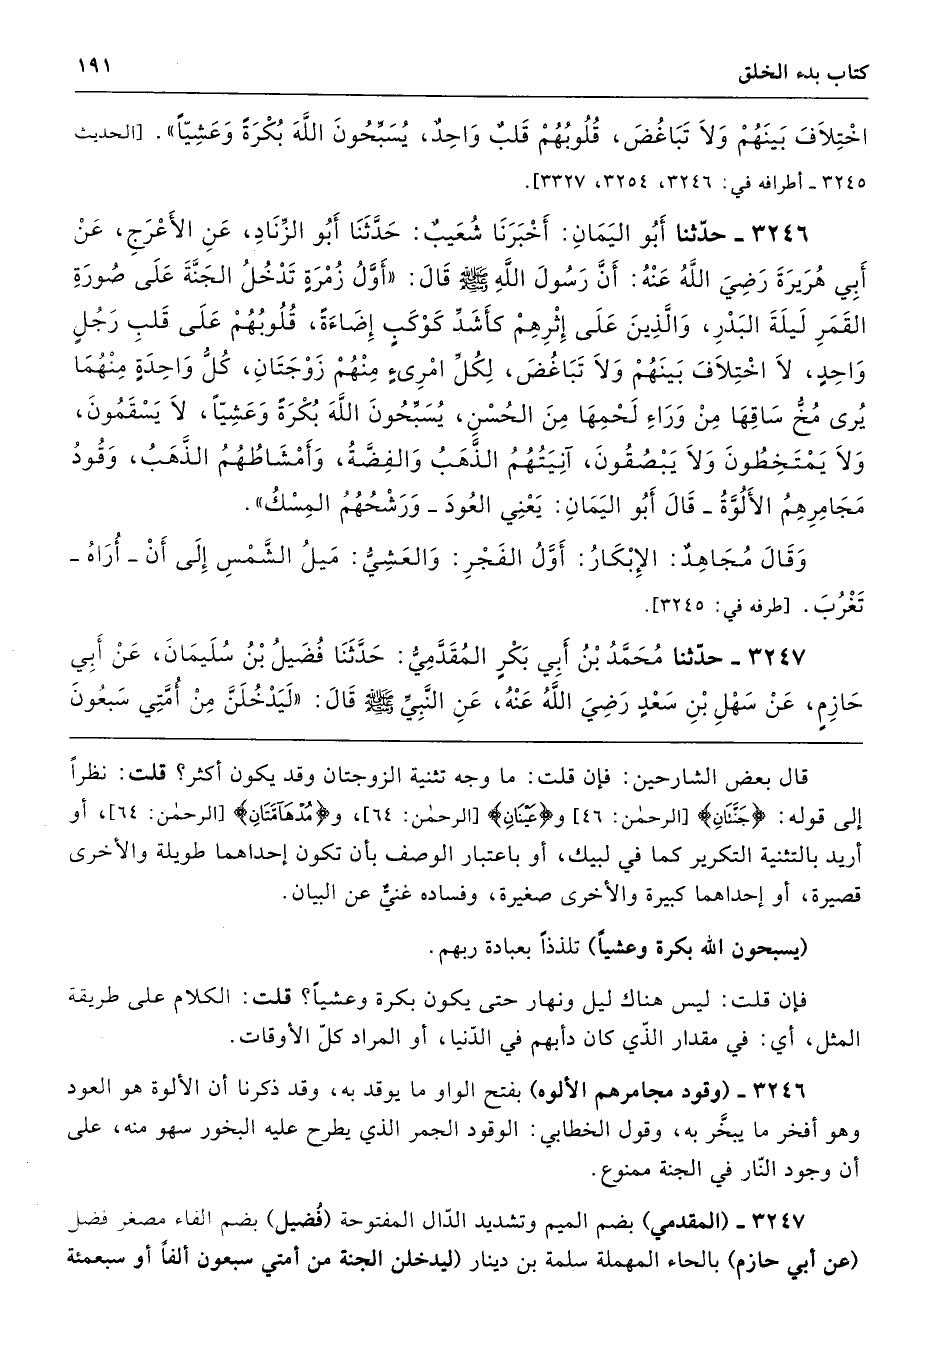 كتاب بدء الخلق ١٩١
اخْتِلاَفَ بَينَهُمْ وَلاَ تَبَاغُضَ، قُلُوبُهُمْ قَلبٌ وَاحِدٌ، يُسَبِّحُونَ اللَّهَ بُكْرَةً وَعَشِيّاً». [الحديث
٣٢٤٥ ـ أطرافه في: ٣٢٤٦، ٣٢٥٤، ٣٣٢٧].
٣٢٤٦ ـ حدّثنا أَبُو اليَمَانِ: أَخْبَرَنَا شُعَيبٌ: حَدَّثَنَا أَبُو الزِّنَادِ، عَنِ الأَعْرَجِ، عَنْ
أَبِي هُرَيرَةَ رَضِيَ اللَّهُ عَنْهُ: أَنَّ رَسُولَ اللَّهِ ﷺ قَالَ: «أَوَّلُ زُمْرَةٍ تَدْخُلُ الجَنَّةَ عَلَى صُورَةِ
القَمَرِ لَيلَةَ البَدْرِ، وَالَّذِينَ عَلَى إِثْرِهِمْ كَأَشَدِّ كَوْكَبٍ إِضَاءَةً، قُلُوبُهُمْ عَلَى قَلبِ رَجُلٍ
وَاحِدٍ، لاَ اخْتِلاَفَ بَينَهُمْ وَلاَ تَبَاغُضَ، لِكُلِّ امْرِىءٍ مِنْهُمْ زَوْجَتَانِ، كُلُّ وَاحِدَةٍ مِنْهُمَا
يُرى مُخُّ سَاقِهَا مِنْ وَرَاءِ لَحْمِهَا مِنَ الحُسْنِ، يُسَبِّحُونَ اللَّهَ بُكْرَةً وَعَشِيّاً، لاَ يَسْقَمُونَ،
وَلاَ يَمْتَخِطُونَ وَلاَ يَبْصُقُونَ، آنِيَتُهُمُ الذَّهَبُ وَالفِضَّةُ، وَأَمْشَاطُهُمُ الذَّهَبُ، وَقُودُ
مَجَامِرِهِمُ الأَلُوَّةُ ـ قَالَ أَبُو اليَمَانِ: يَعْنِي العُودَ ـ وَرَشْحُهُمُ المِسْكُ».
وَقَالَ مُجَاهِدٌ: الإِبْكَارُ: أَوَّلُ الفَجْرِ: وَالعَشِيُّ: مَيلُ الشَّمْسِ إِلَى أَنْ ـ أُرَاهُ ـ
تَغْرُبَ. [طرفه في: ٣٢٤٥].
٣٢٤٧ ـ حدّثنا مُحَمَّدُ بْنُ أَبِي بَكْرٍ المُقَدَّمِيُّ: حَدَّثَنَا فُضَيلُ بْنُ سُلَيمَانَ، عَنْ أَبِي
حَازِمٍ، عَنْ سَهْلِ بْنِ سَعْدٍ رَضِيَ اللَّهُ عَنْهُ، عَنِ النَّبِيِّ ﷺ قَالَ: «لَيَدْخُلَنَّ مِنْ أُمَّتِي سَبعُونَ
قال بعض الشارحين: فإن قلت: ما وجه تثنية الزوجتان وقد يكون أكثر؟ قلت: نظراً
إلى قوله: ﴿جَنَّتَانِ﴾ [الرحمٰن: ٤٦] و﴿عَيْنَانِ﴾ [الرحمٰن: ٦٤]، و﴿مُدْهَامَّتَانِ﴾ [الرحمٰن: ٦٤]، أو
أريد بالتثنية التكرير كما في لبيك، أو باعتبار الوصف بأن تكون إحداهما طويلة والأخرى
قصيرة، أو إحداهما كبيرة والأخرى صغيرة، وفساده غنيٌّ عن البيان.
(يسبحون الله بكرة وعشياً) تلذذاً بعبادة ربهم.
فإن قلت: ليس هناك ليل ونهار حتى يكون بكرة وعشياً؟ قلت: الكلام على طريقة
المثل، أي: في مقدار الذّي كان دأبهم في الدّنيا، أو المراد كلّ الأوقات.
٣٢٤٦ ـ (وقود مجامرهم الألوه) بفتح الواو ما يوقد به، وقد ذكرنا أن الألوة هو العود
وهو أفخر ما يبخَّر به، وقول الخطابي: الوقود الجمر الذي يطرح عليه البخور سهو منه، على
أن وجود النّار في الجنة ممنوع.
٣٢٤٧ ـ (المقدمي) بضم الميم وتشديد الدّال المفتوحة (فُضيل) بضم الفاء مصغر فضل
(عن أبي حازم) بالحاء المهملة سلمة بن دينار (ليدخلن الجنة من أمتي سبعون ألفاً أو سبعمئة